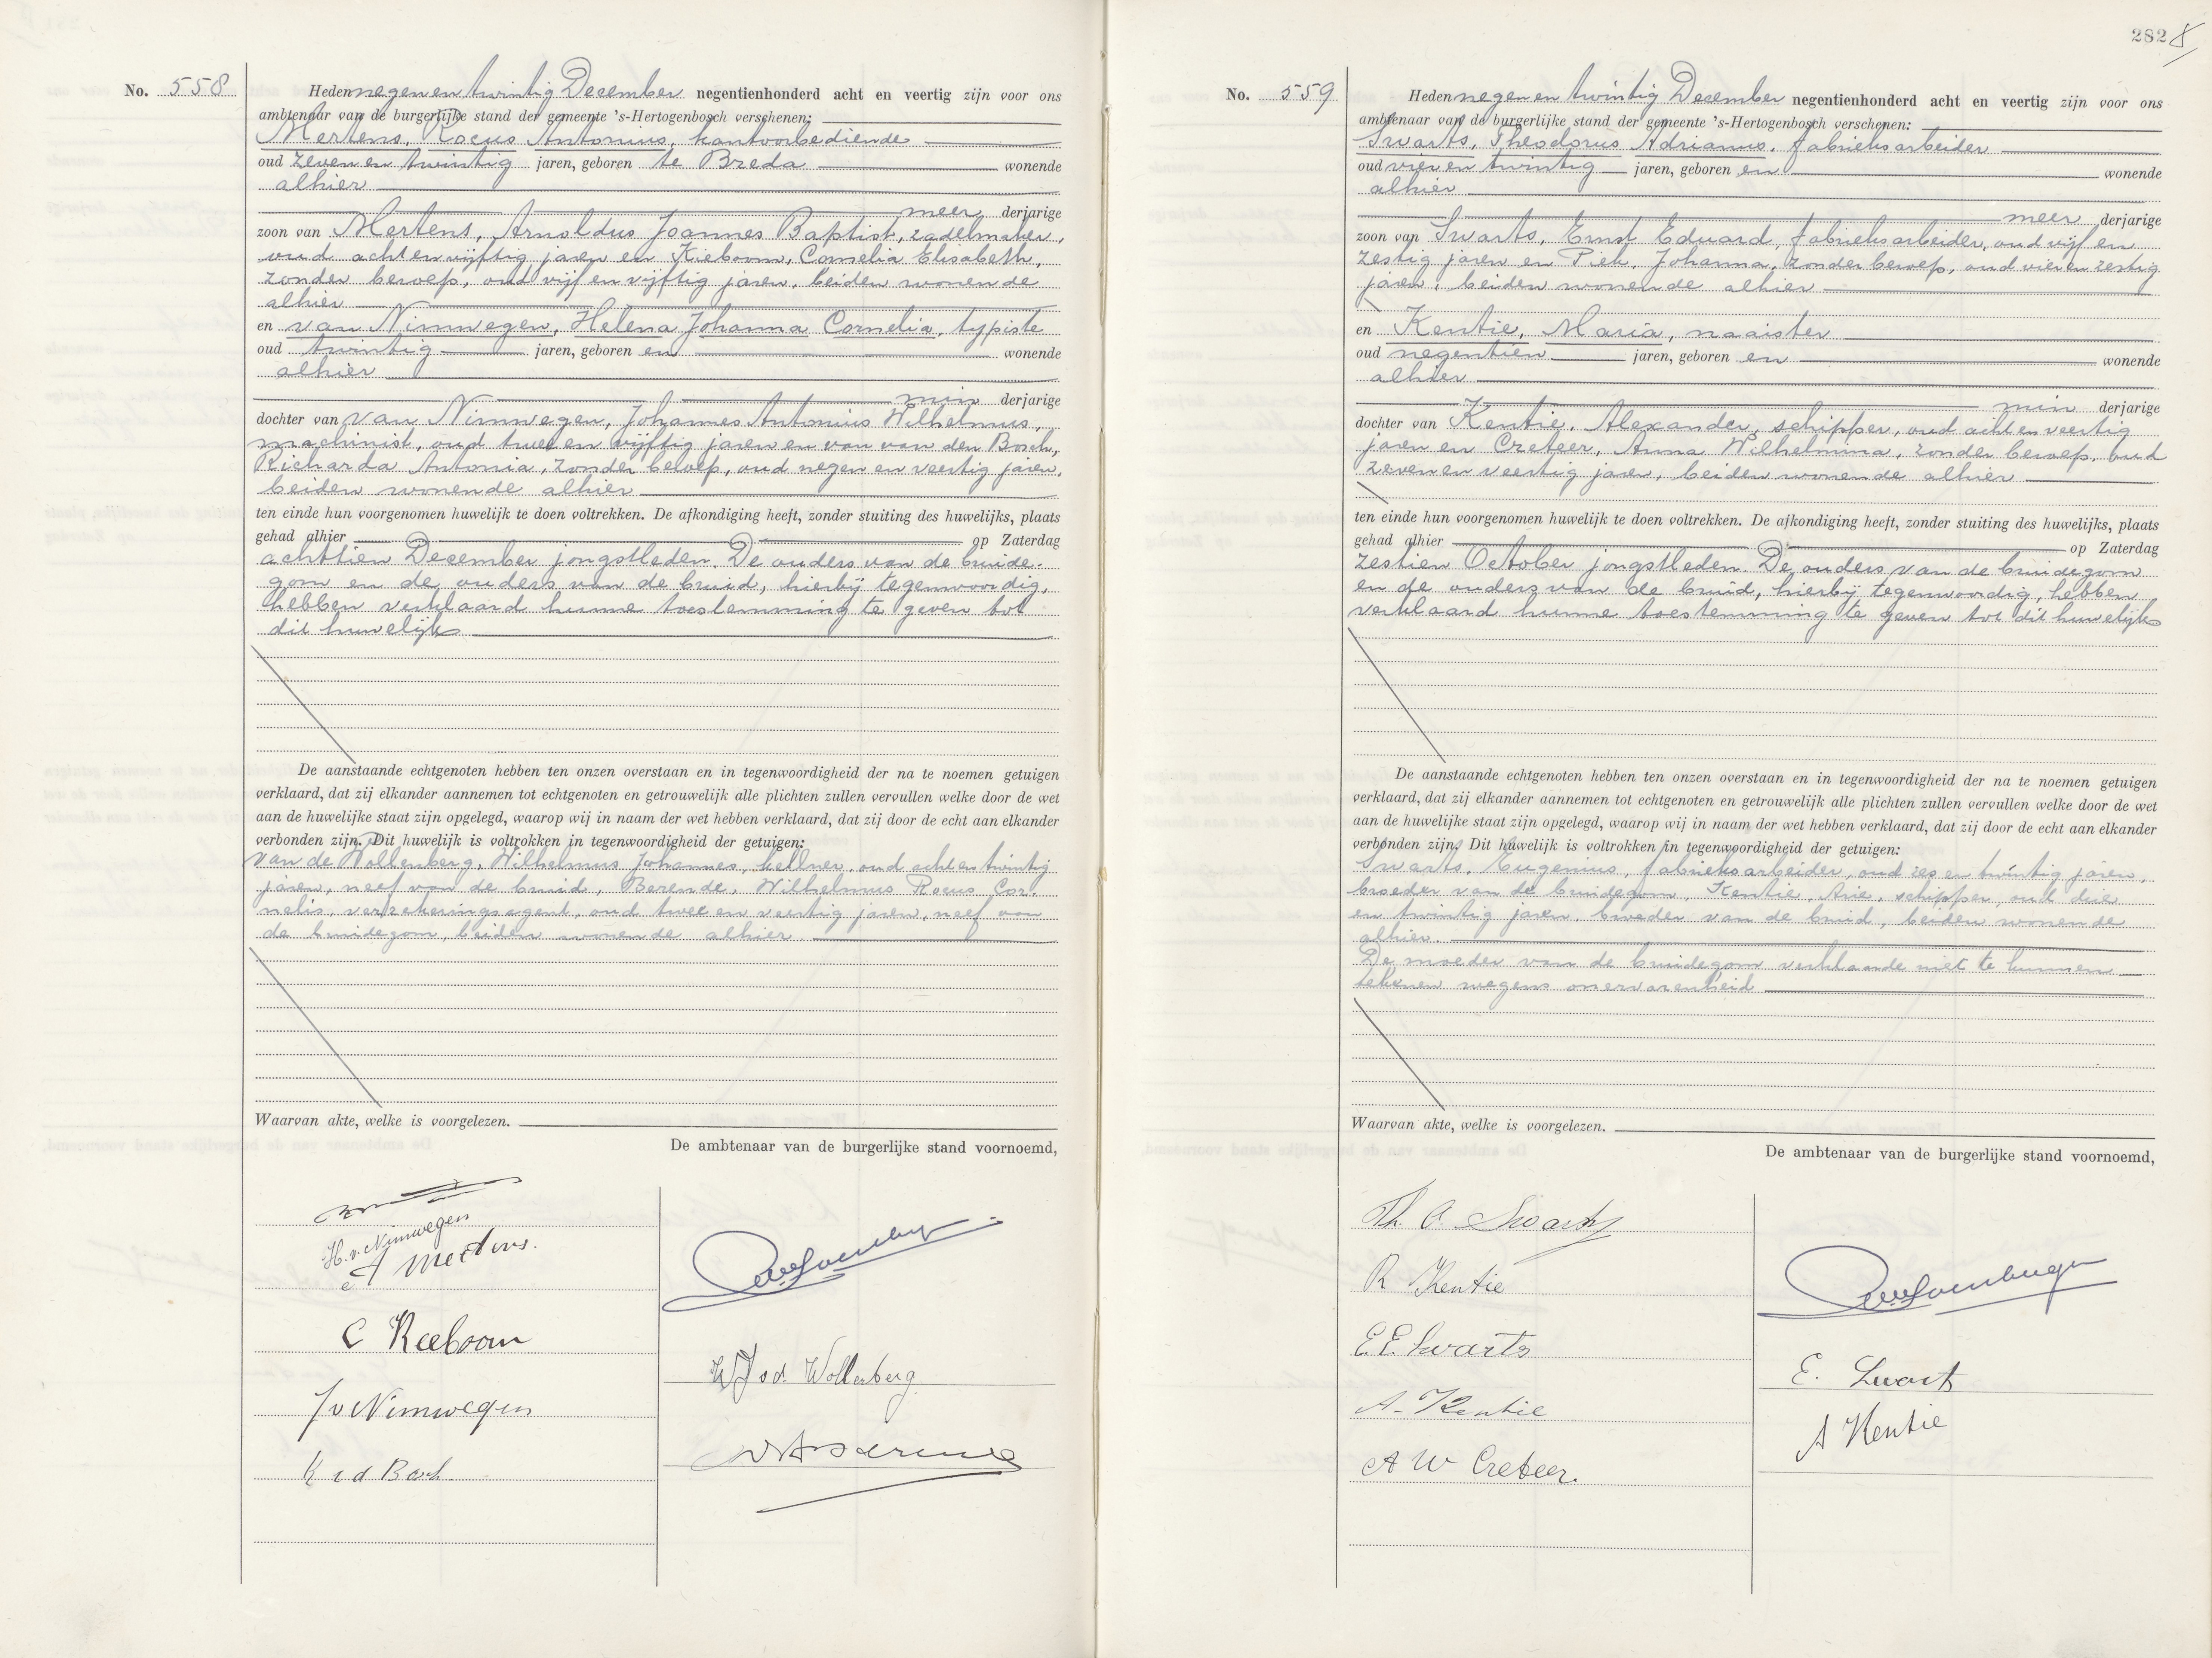 No. 558
Heden negen en twintig December negentienhonderd acht en veertig zijn voor ons
ambtenaar van de burgerlijke stand der gemeente 's-Hertogenbosch verschenen:
Mertens, Rocus Antonius, kantoorbediende
oud zeven en twintig jaren, geboren te Breda wonende
alhier
meer derjarige
zoon van Mertens, Arnoldus Joannes Baptist, zadelmaker,
oud acht en vijftig jaren en Kieboom, Cornelia Elisabeth,
zonder beroep, oud vijf en vijftig jaren, beiden wonende
alhier
en van Nimwegen, Helena Johanna Cornelia, typiste
oud twintig jaren, geboren en wonende
alhier
min derjarige
dochter van van Nimwegen, Johannes Antonius Wilhelmus,
machinist, oud twee en vijftig jaren en van van den Bosch,
Richarda Antonia, zonder beroep, oud negen en veertig jaren,
beiden wonende alhier
ten einde hun voorgenomen huwelijk te doen voltrekken. De afkondiging heeft, zonder stuiting des huwelijks, plaats
gehad alhier op Zaterdag
achttien December jongstleden. De ouders van de bruide-
gom en de ouders van de bruid, hierbij tegenwoordig,
hebben verklaard hunne toestemming te geven tot
dit huwelijk
De aanstaande echtgenoten hebben ten onzen overstaan en in tegenwoordigheid der na te noemen getuigen
verklaard, dat zij elkander aannemen tot echtgenoten en getrouwelijk alle plichten zullen vervullen welke door de wet
aan de huwelijke staat zijn opgelegd, waarop wij in naam der wet hebben verklaard, dat zij door de echt aan elkander
verbonden zijn. Dit huwelijk is voltrokken in tegenwoordigheid der getuigen:
van de Wollenberg, Wilhelmus Johannes, kellner, oud acht en twintig
jaren, neef van de bruid, Berende, Wilhelmus Rocus Cor-
nelis, verzekeringsagent, oud twee en veertig jaren, neef van
de bruidegom, beiden wonende alhier
Waarvan akte, welke is voorgelezen.
De ambtenaar van de burgerlijke stand voornoemd,
H. v. Nimwegen
A Mertens.
C Kieboom
WJ v d. Wollenberg
J v Nimwegen
R v d Bosch
282
No. 559
Heden negen en twintig December negentienhonderd acht en veertig zijn voor ons
ambtenaar van de burgerlijke stand der gemeente 's-Hertogenbosch verschenen:
Swarts, Theodorus Adrianus, fabrieksarbeider
oud vier en twintig jaren, geboren en wonende
alhier
meer derjarige
zoon van Swarts, Ernst Eduard, fabrieksarbeider, oud vijf en
zestig jaren en Piek, Johanna, zonder beroep, oud vier en zestig
jaren, beiden wonende alhier
en Kentie, Maria, naaister
oud negentien jaren, geboren en wonende
alhier
min derjarige
dochter van Kentie, Alexander, schipper, oud acht en veertig
jaren en Creteer, Anna Wilhelmina, zonder beroep, oud
zeven en veertig jaren, beiden wonende alhier
ten einde hun voorgenomen huwelijk te doen voltrekken. De afkondiging heeft, zonder stuiting des huwelijks, plaats
gehad alhier op Zaterdag
zestien October jongstleden. De ouders van de bruidegom
en de ouders van de bruid, hierbij tegenwoordig, hebben
verklaard hunne toestemming te geven tot dit huwelijk
De aanstaande echtgenoten hebben ten onzen overstaan en in tegenwoordigheid der na te noemen getuigen
verklaard, dat zij elkander aannemen tot echtgenoten en getrouwelijk alle plichten zullen vervullen welke door de wet
aan de huwelijke staat zijn opgelegd, waarop wij in naam der wet hebben verklaard, dat zij door de echt aan elkander
verbonden zijn. Dit huwelijk is voltrokken in tegenwoordigheid der getuigen:
Swarts, Eugenius, fabrieksarbeider, oud zes en twintig jaren,
broeder van de bruidegom, Kentie, Arie, schipper, oud drie
en twintig jaren, broeder van de bruid, beiden wonende
alhier.
De moeder van de bruidegom verklaarde niet te kunnen
tekenen wegens onervarenheid
Waarvan akte, welke is voorgelezen.
De ambtenaar van de burgerlijke stand voornoemd,
Th. A Swarts
R Kentie
E.E. Swarts
E. Swarts
A. Kentie
A Kentie
A W Creteer.